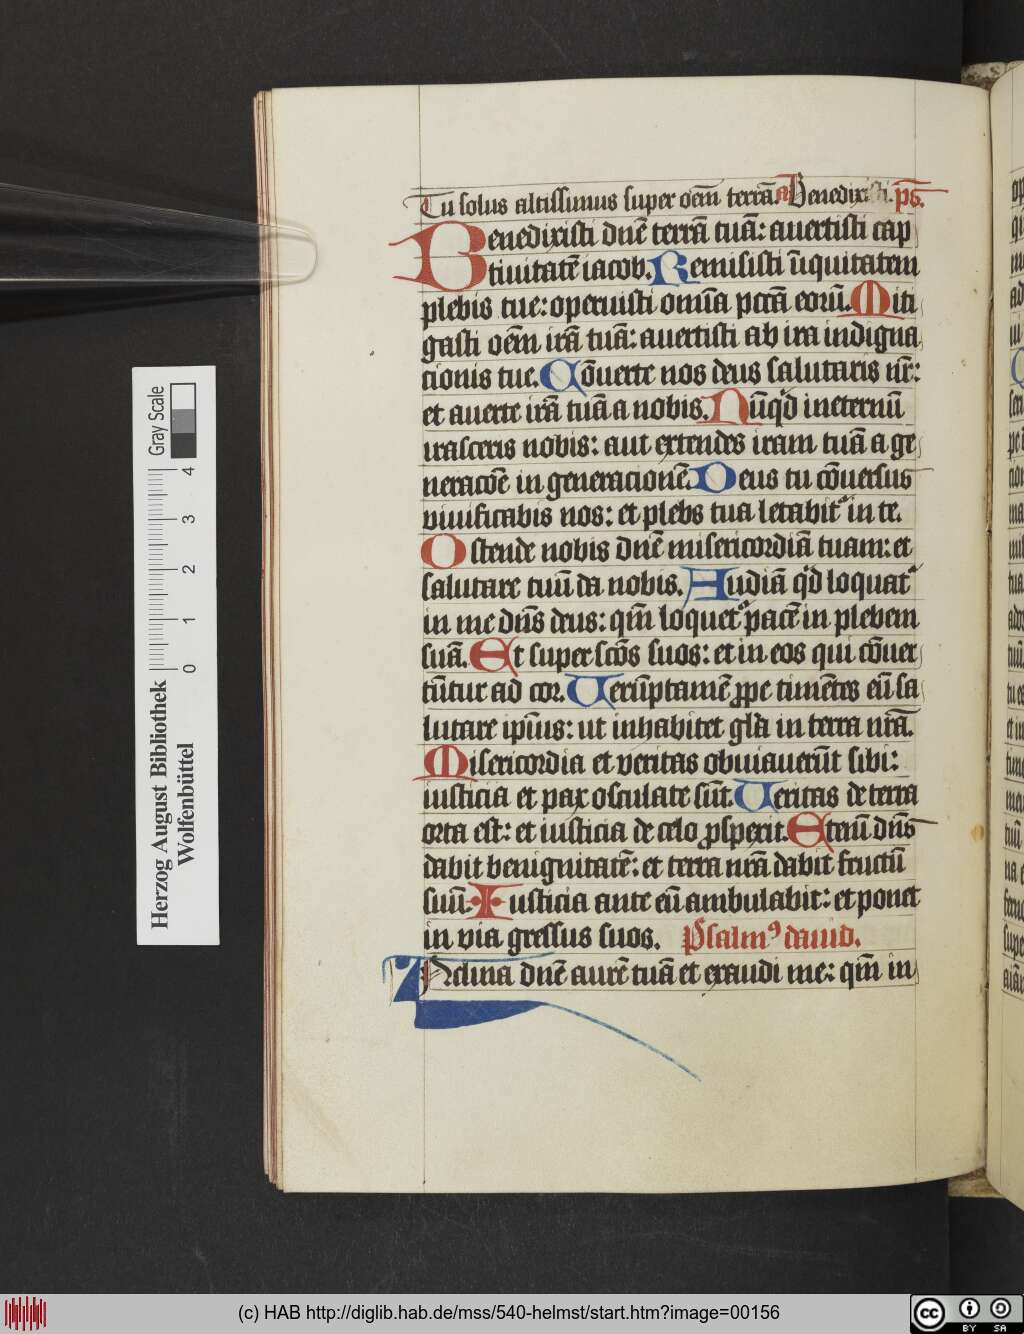 Tu solus altissimus super oēm terrā. a Benedixisti. ps̄.
Benedixisti dn̄e terrā tuā: auertisti cap
tiuitatē iacob. Remisisti īiquitatem
plebis tue: operuisti omīa pccā eorū. Miti
gasti oēm irā tuā: auertisti ab ira indigna
cionis tue. Cōuerte nos deus salutaris nr̄:
et auerte irā tuā a nobis. Nūqd ineternū
irasceris nobis: aut extendes iram tuā a ge
neracōe in generacionē. Deus tu cōuersus
viuificabis nos: et plebs tua letabit᷑ in te.
Ostende nobis dn̄e misericordiā tuam: et
salutare tuū da nobis. Audiā qd loquat᷑
in me dn̄s deus: qm̄ loquet᷑ pacē in plebem
suā. Et super scōs suos: et in eos qui cōuer
tūtur ad cor. Uerūptamē ꝓpe timētes eū sa
lutare ip̄ius: ut inhabitet glā in terra nrā.
Misericordia et veritas obuiauerūt sibi:
iusticia et pax osculate sūt. Ueritas de terra
orta est: et iusticia de celo ꝓsperit. Etenī dn̄s
dabit benignitatē: et terra nrā dabit fructū
suū. Iusticia ante eū ambulabit: et ponet
in via gressus suos. Psalmꝰ dauid.
Inclina dn̄e aurē tuā et exaudi me: qm̄ in
Herzog August Bibliothek
Wolfenbüttel
0 1 2 3 4
Gray Scale
(c) HAB http://diglib.hab.de/mss/540-helmst/start.htm?image=00156
cc BY SA